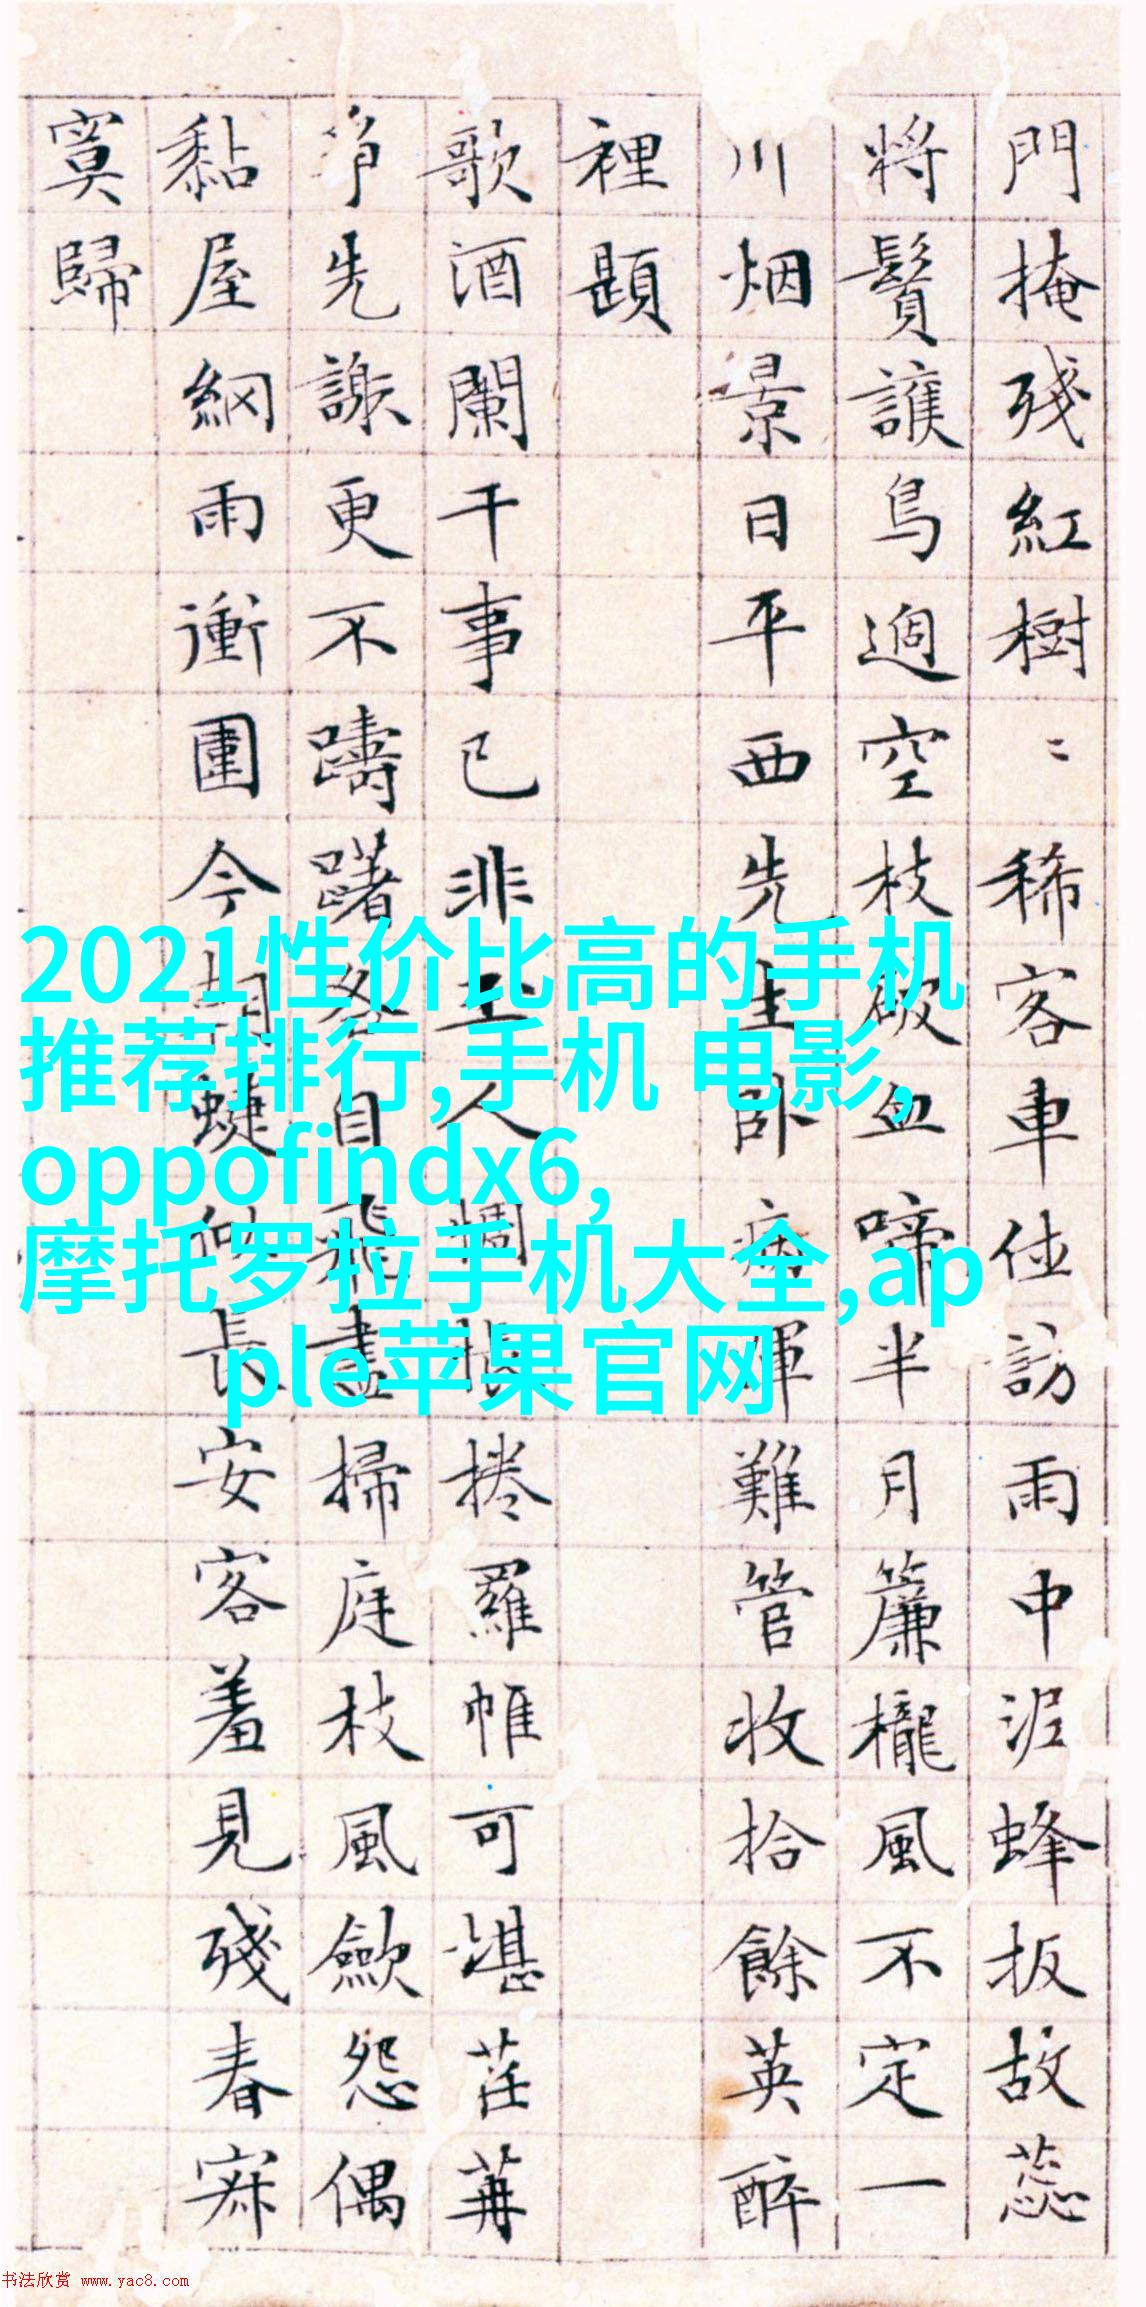 門掩殘紅樹〻稀客車訪雨中泥蜂扳故蕊
將鬢護鳥過空枝破血啼半月簾櫳風不定一
川烟景日平西先生卧病渾難管收拾餘英醉
裡題
歌酒闌干事已非主人惆悵捲羅帷可堪荏苒
爭先謝更不躊躇各自飛盡掃庭枝風歛怨偶
黏屋網雨衝圍今朝蜨似長安客羞見殘春寂
寞歸
2021性价比高的手机
推荐排行,手机 电影,
oppofindx6,
摩托罗拉手机大全,ap
ple苹果官网
书法欣赏 www.yac8.com